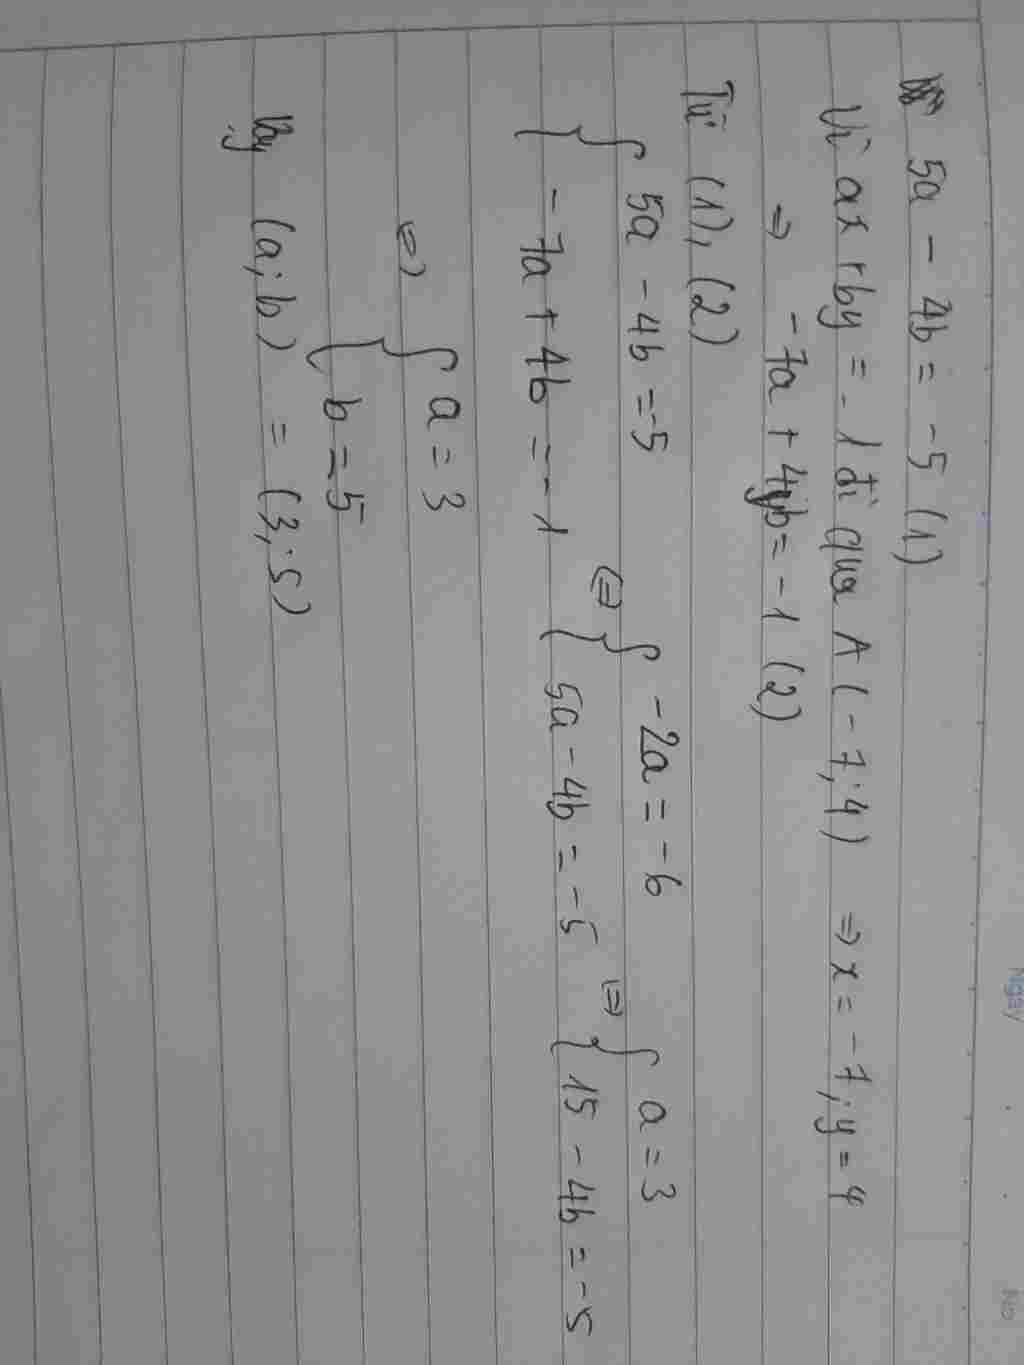 5a - 4b = -5 (1)
Vì ax + by = -1 đi qua A (-7; 4) ⇒ x = -7; y = 4
⇒ -7a + 4b = -1 (2)
Từ (1), (2)
{ 5a - 4b = -5 ⇔ { -2a = -6 ⇔ { a = 3
-7a + 4b = -1 5a - 4b = -5 15 - 4b = -5
⇔ { a = 3
b = 5
Vậy (a; b) = (3; 5)
Ngày
No